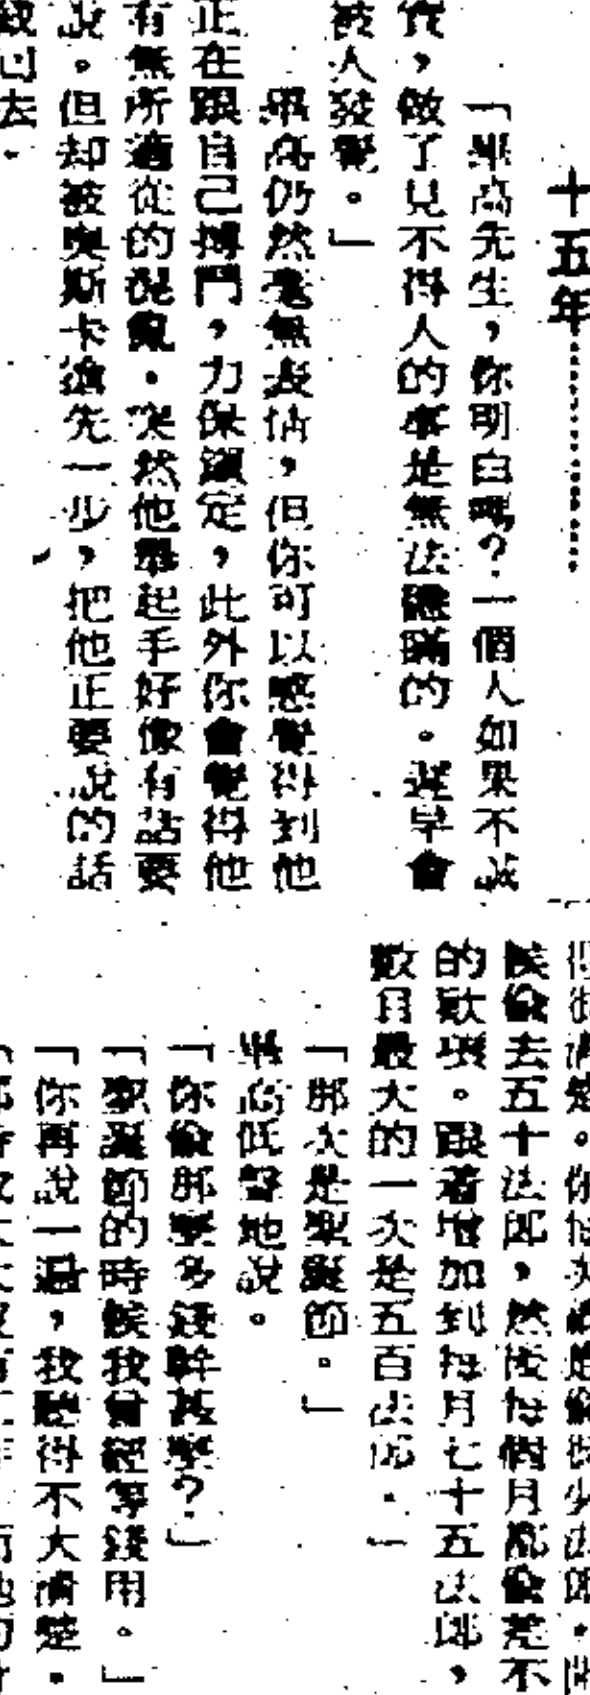 十五年
「畢高先生，你明白嗎？一個人如果不誠
實，做了見不得人的事是無法隱瞞的。遲早會
被人發覺。」
畢高仍然毫無表情，但你可以感覺得到他
正在跟自己搏鬥，力保鎮定，此外你會覺得他
有無所適從的混亂。突然他舉起手好像有話要
說。但却被奧斯卡搶先一步，把他正要說的話
去。
清楚。你每次
候偷去五十法郎，然後每個月都偷差不
的欵項。跟着增加到每月七十五法郎，
數目最大的一次是五百法郎。」
「那次是聖誕節。」
畢高低聲地說。
「你偷那麼多錢幹甚麼？」
「聖誕節的時候我曾經等錢用。」
「你再說一遍，我聽得不大清楚。